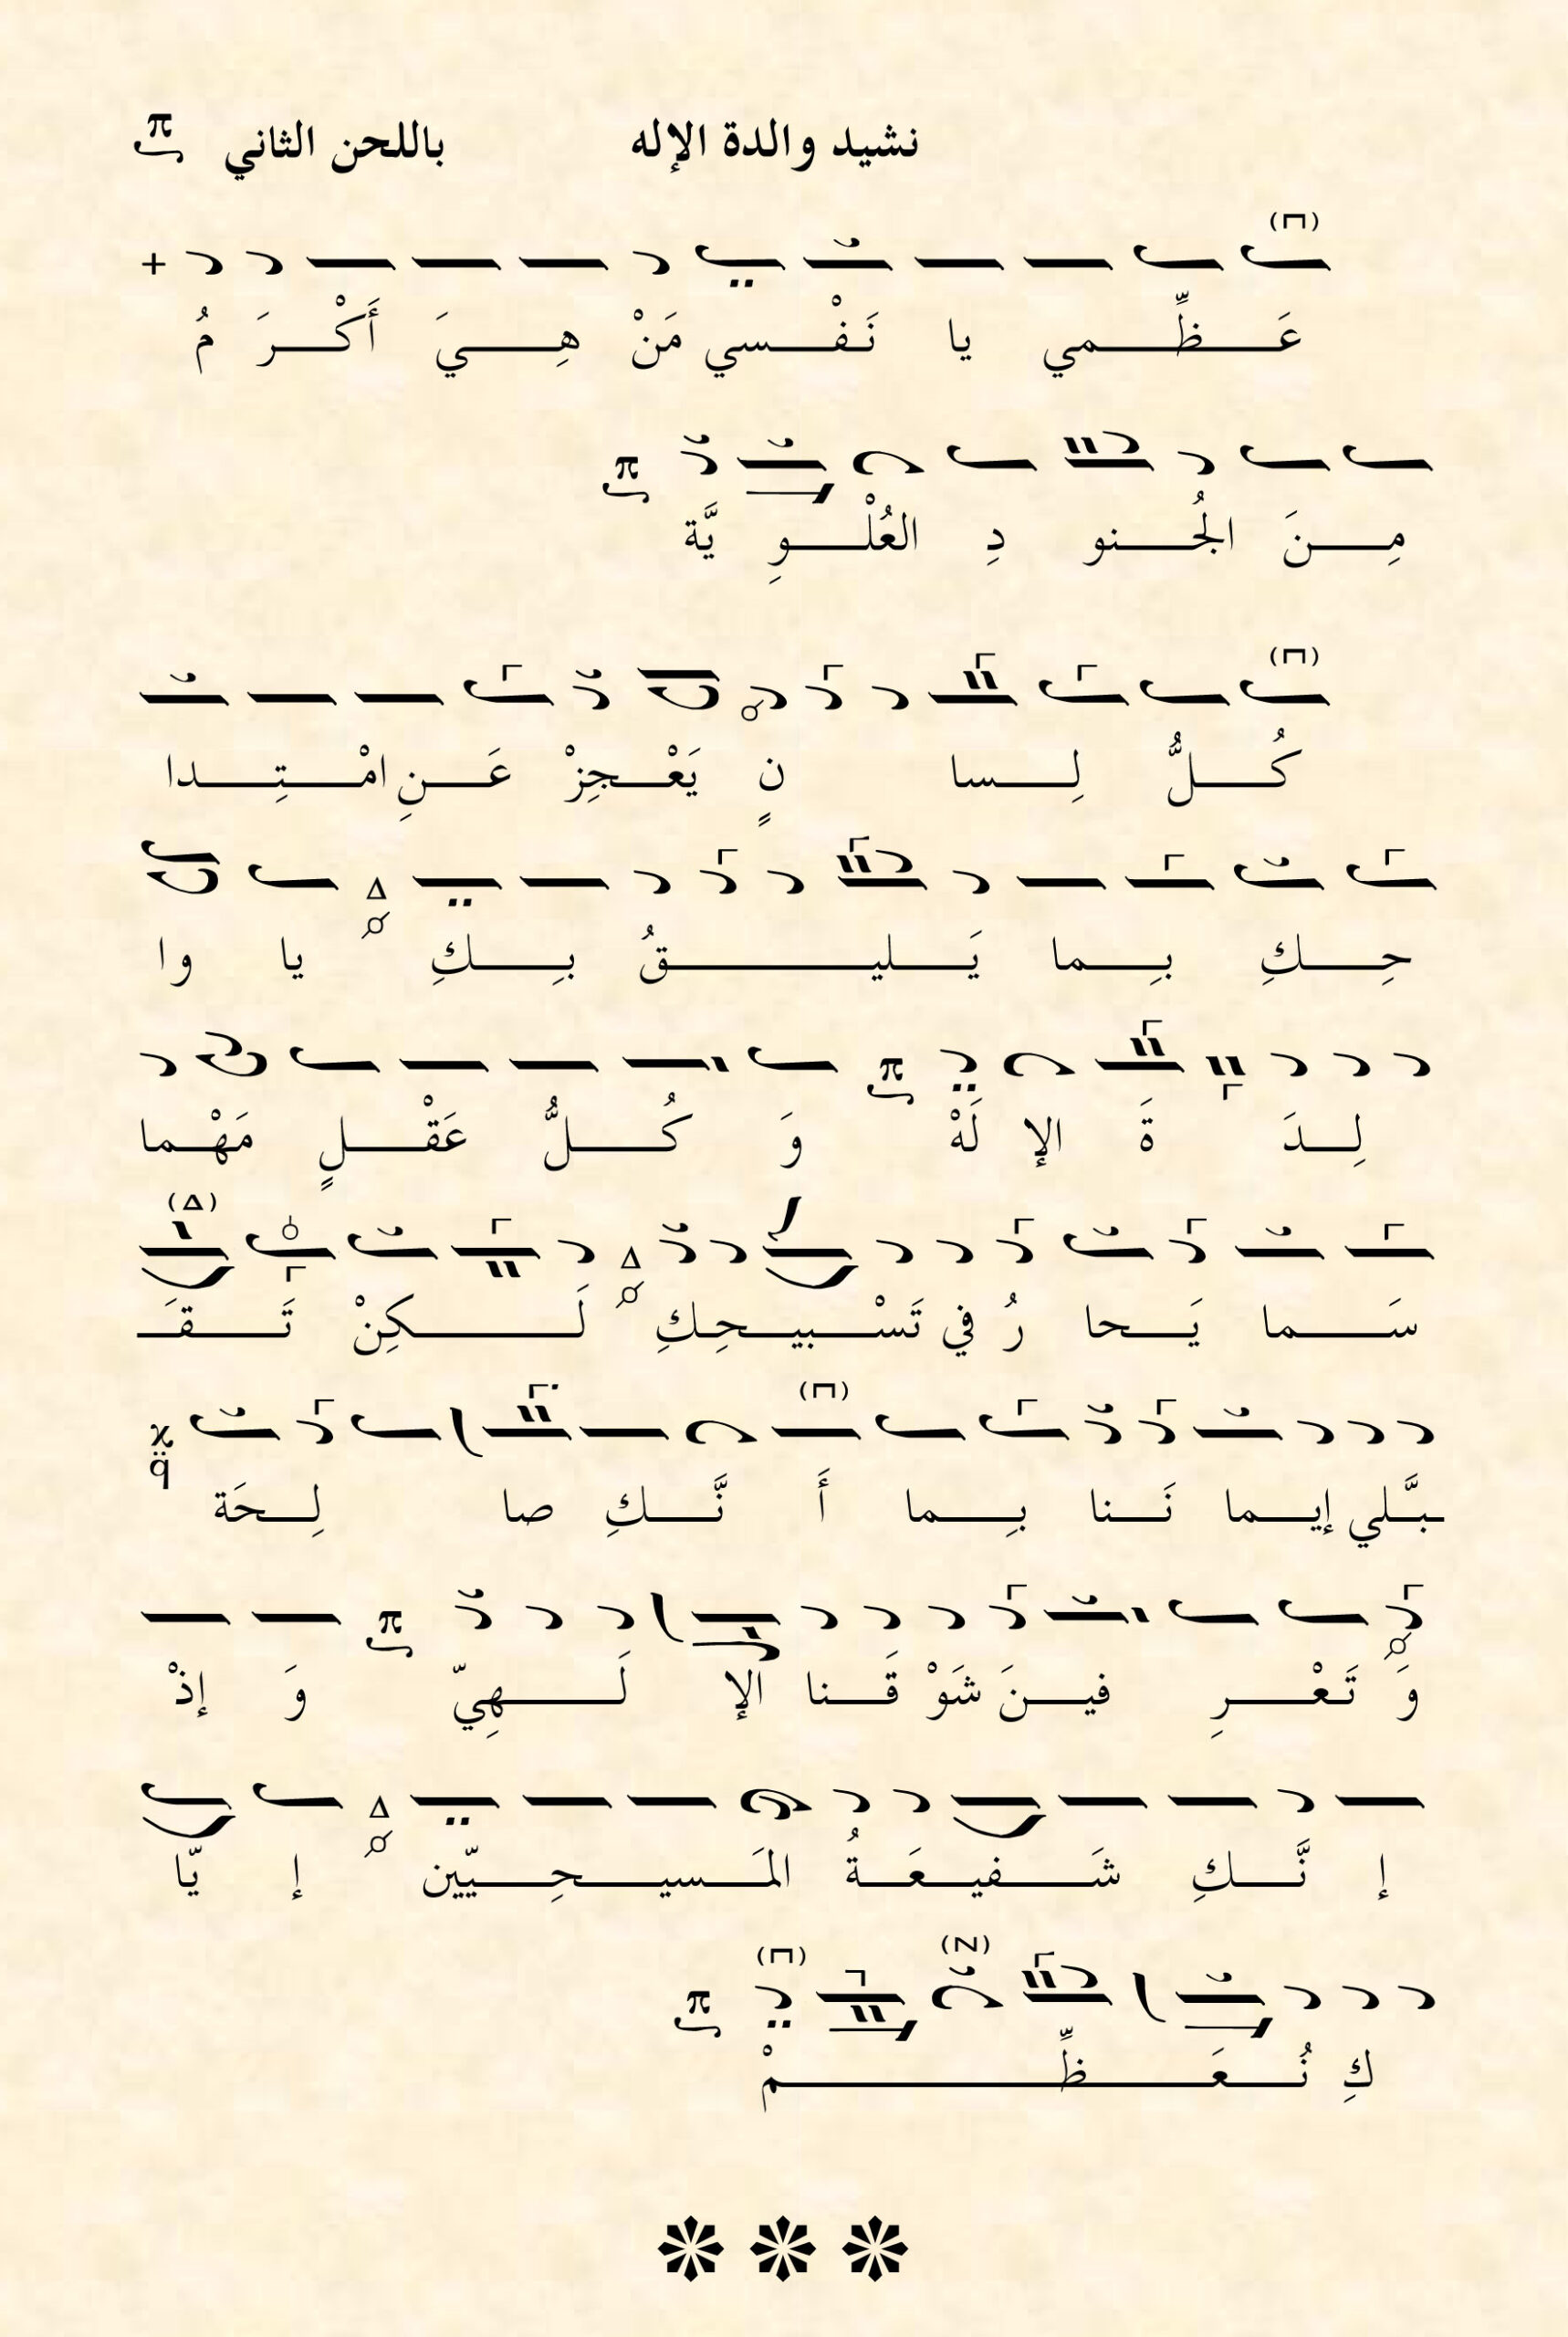 نشيد والدة الإله باللحن الثاني
عَظِّمي يا نَفْسي مَنْ هِيَ أَكْرَمُ
مِنَ الجُنودِ العُلْوِيَّة
كُلُّ لِسانٍ يَعْجِزْ عَنِ امْتِدا
حِكِ بِما يَليقُ بِكِ يا وا
لِدَةَ الإلَهْ وَ كُلُّ عَقْلٍ مَهْما
سَما يَحارُ في تَسْبيحِكِ لَكِنْ تَقَـ
ـبَّلي إيمانَنا بِما أَنَّكِ صالِحَة
وَ تَعْرِفينَ شَوْقَنا الإلَهِيّ وَ إذْ
إنَّكِ شَفيعَةُ المَسيحِيّين إيّا
كِ نُعَظِّمْ